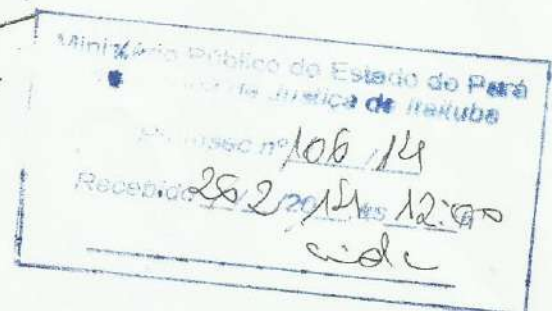 Ministério Público do Estado do Pará
de Justiça de Itaituba
nº 106/14
Recebido 26/2/2014 às 12:00